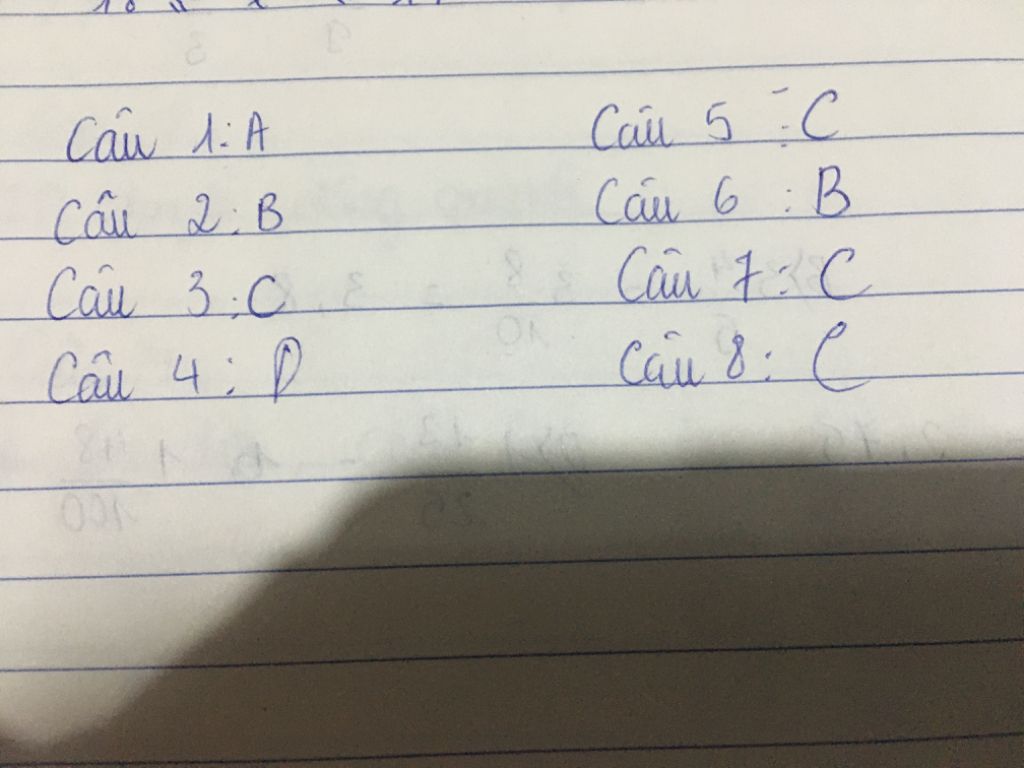 Câu 1: A
Câu 2: B
Câu 3: C
Câu 4: D
Câu 5: C
Câu 6: B
Câu 7: C
Câu 8: C